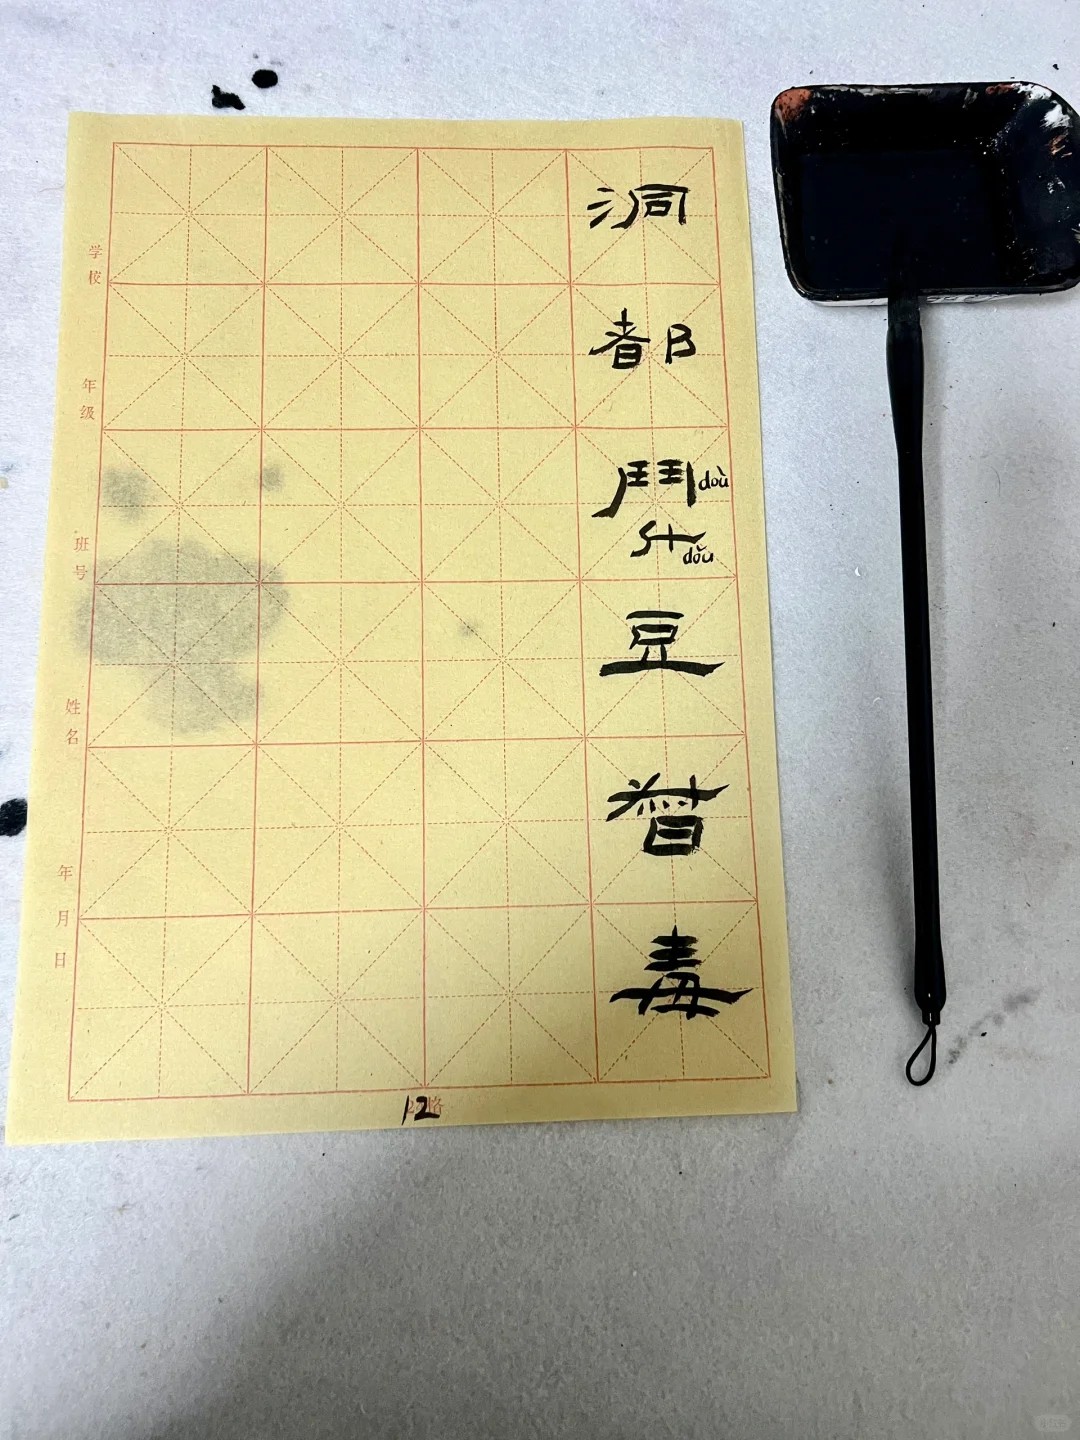 洞
都
鬥 doù
斗 dǒu
豆
督
毒
学校
年级
班号
姓名
年月日
12
格